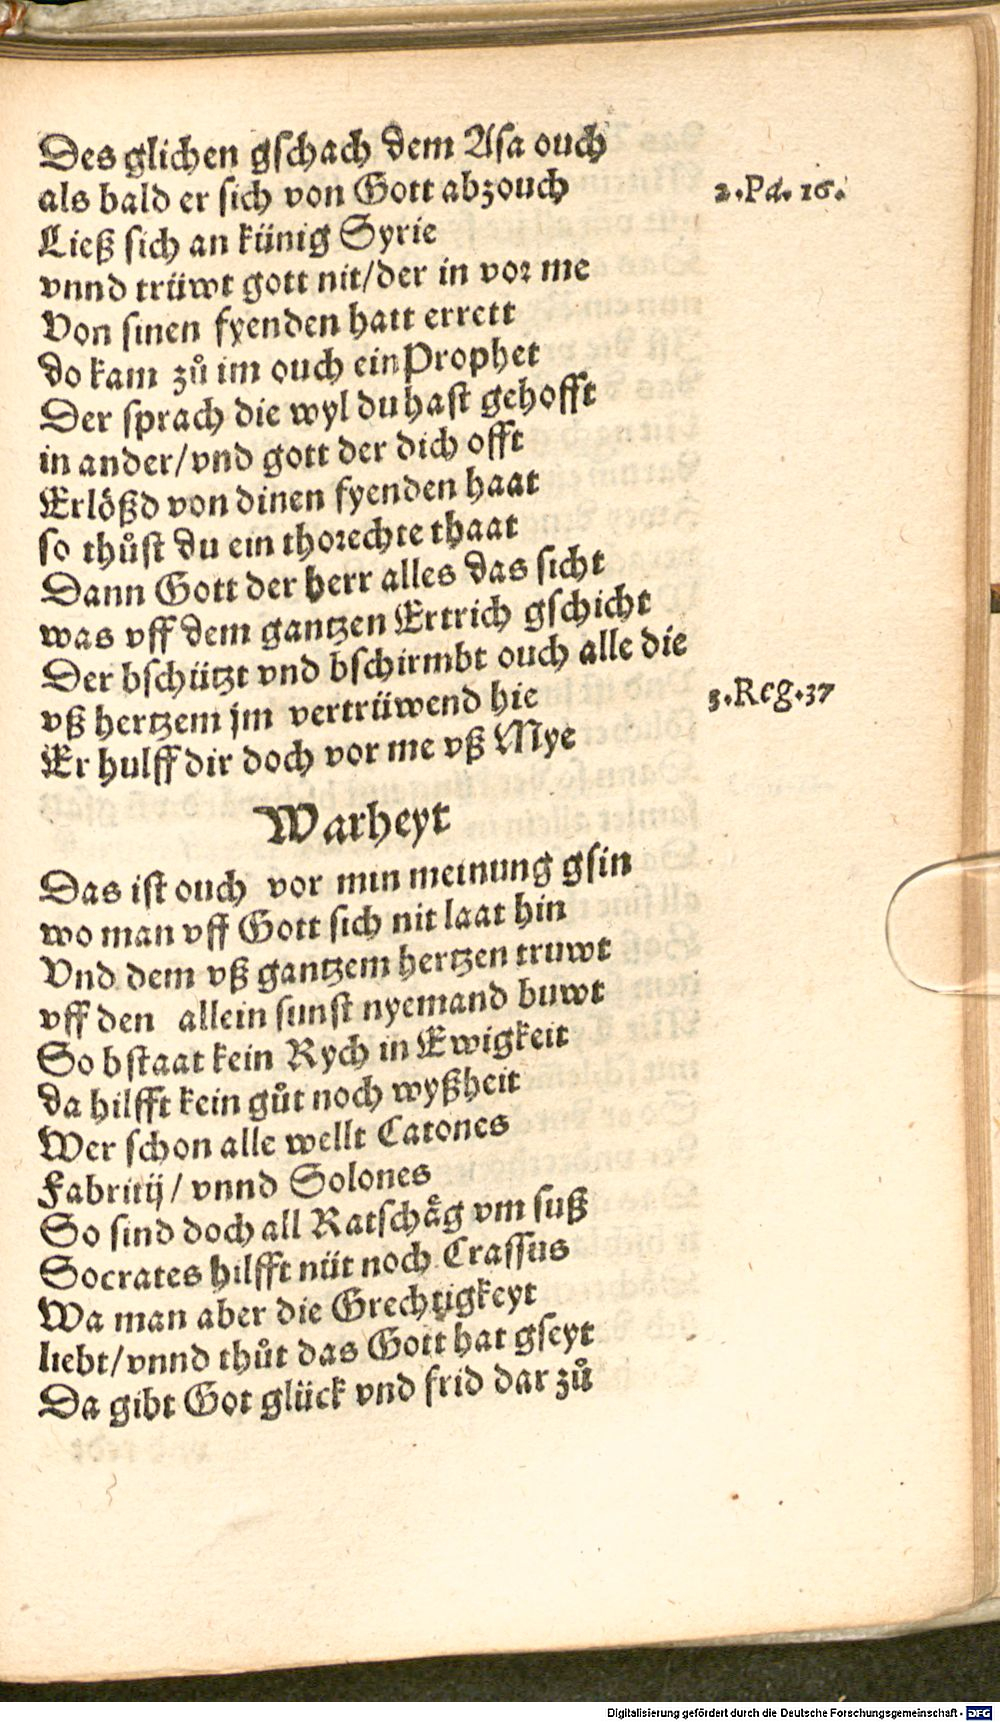 Des glichen gschach dem Asa ouch
als bald er sich von Gott abzouch
2.Pa. 16.
Ließ sich an künig Syrie
vnnd trüwt gott nit/der in vor me
Von sinen fyenden hatt errett
do kam zů im ouch ein Prophet
Der sprach die wyl du hast gehofft
in ander/vnd gott der dich offt
Erlößd von dinen fyenden haat
so thůst du ein thorechte thaat
Dann Gott der herr alles das sicht
was vff dem gantzen Ertrich gschicht
Der bschützt vnd bschirmbt ouch alle die
vß hertzem jm vertrüwend hie
3.Reg.37
Er hulff dir doch vor me vß Mye
Warheyt
Das ist ouch vor min meinung gsin
wo man vff Gott sich nit laat hin
Vnd dem vß gantzem hertzen truwt
vff den allein sunst nyemand buwt
So bstaat kein Rych in Ewigkeit
da hilfft kein gůt noch wyßheit
Wer schon alle wellt Catones
Fabritij/ vnnd Solones
So sind doch all Ratschäg vm suß
Socrates hilfft nüt noch Crassus
Wa man aber die Grechtigkeyt
liebt/vnnd thůt das Gott hat gseyt
Da gibt Got glück vnd frid dar zů
Digitalisierung gefördert durch die Deutsche Forschungsgemeinschaft - DFG